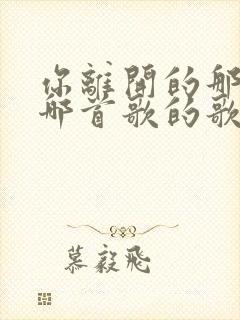 你離開的那
那首歌的歌
慕毅飛